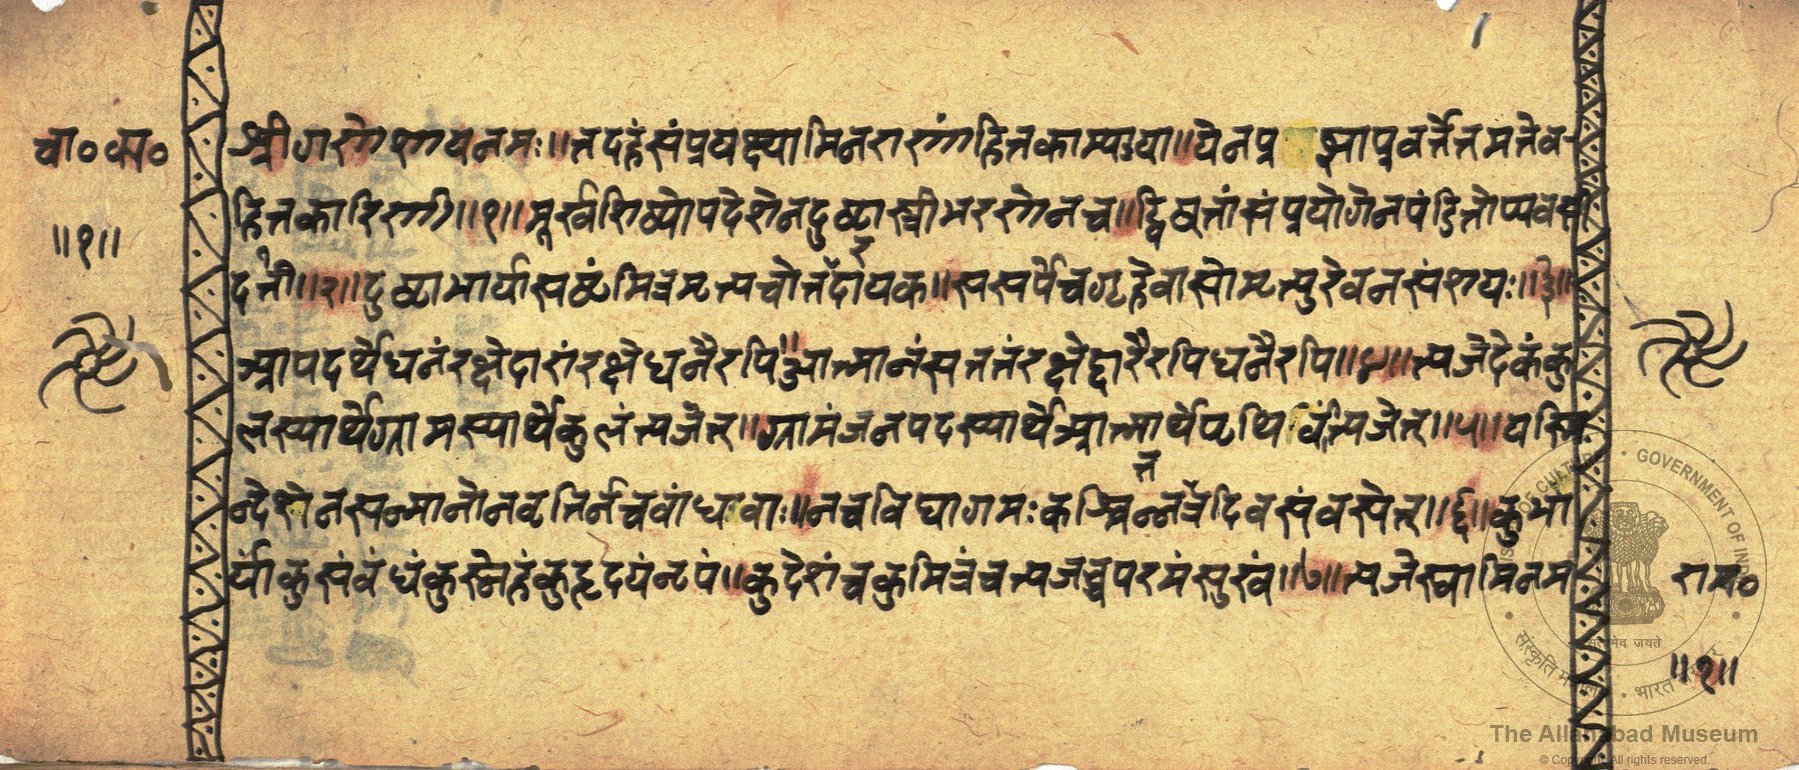 चा० का०
॥१॥
श्रीगणेशायनमः॥तदहंसंप्रवक्ष्यामिनराणांहितकाम्यया॥येनप्रज्ञाप्रवर्त्तेतमतेव
हितकारिणी॥१॥मूर्खशिष्योपदेशेनदुष्टास्त्रीभरणेनच॥द्विषतांसंप्रयोगेनपंडितोप्यवसी
दति॥२॥दुष्टाभार्यासठंमित्रंमृत्यचोत्तरदायक॥ससर्पेचगृहेवासोमृत्युरेवनसंशयः॥३॥
आपदर्थेधनंरक्षेदारांरक्षेधनैरपि॥आत्मानंसततंरक्षेद्दारैरपिधनैरपि॥४॥त्यजेदेकंकु
लस्यार्थेग्रामस्यार्थेकुलंत्यजेत्॥ग्रामंजनपदस्यार्थेआत्मार्थेपृथिवींत्यजेत्॥५॥यस्मि
न्देशेनसन्मानोनवृत्तिर्नचबांधवाः॥नचविद्यागमःकश्चिन्नतत्रदिवसंवसेत्॥६॥कुभा
र्यांकुसंबंधंकुस्नेहंकुहृदयंनृपं॥कुदेशंचकुमित्रंचत्यजच्चपरमंसुखं॥७॥त्यजेस्वामिनम
राम०
॥१॥
MINISTRY OF CULTURE • GOVERNMENT OF INDIA
सत्यमेव जयते
The Allahabad Museum
© Copyright. All rights reserved.